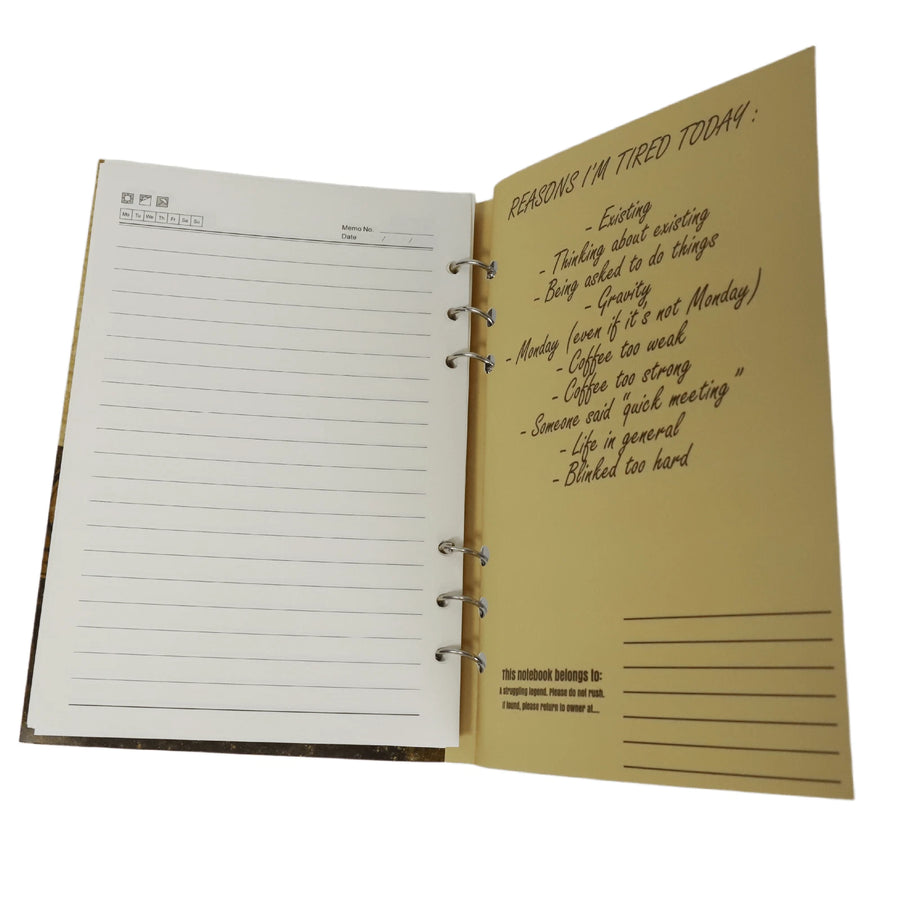 Mo Tu We Th Fr Sa Su
Memo No.
Date / /
REASONS I'M TIRED TODAY :
- Existing
- Thinking about existing
- Being asked to do things
- Gravity
- Monday (even if it's not Monday)
- Coffee too weak
- Coffee too strong
- Someone said "quick meeting"
- Life in general
- Blinked too hard
This notebook belongs to:
A struggling legend. Please do not rush.
If found, please return to owner at....